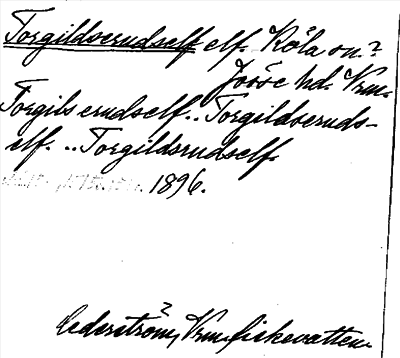 Torgildserudself elf. Köla sn.?
Jösse hd. Vrm.
Torgils erudself.. Torgildseruds-
elf. .. Torgildsrudself.
1896.
Cederström, Vrm. fiskevatten.